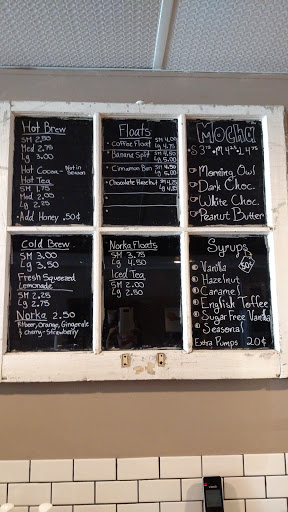 Hot Brew
SM 2.50
Med 2.75
Lg 3.00
Hot Cocoa - Not in Season
Hot Tea
SM 1.75
Med 2.00
Lg 2.25
· Add Honey .50¢
Floats
· Coffee Float SM 4.00
Lg 4.75
· Banana Split SM 4.50
Lg 5.00
· Cinnamon Bun SM 4.50
Lg 5.00
· Chocolate Hazelnut
Mocha
Morning Owl
Dark Choc.
White Choc.
Peanut Butter
Cold Brew
SM 3.00
Lg 3.50
Fresh Squeezed
Lemonade
SM 2.25
Lg 2.75
Norka 2.50
Rtbeer, Orange, Gingerale
& cherry-Strawberry
Norka Floats
SM 3.75
Lg 4.50
Iced Tea
SM 2.00
Lg 2.50
Syrups
50¢
Vanilla
Hazelnut
Caramel
English Toffee
Sugar Free Vanilla
Seasonal
Extra Pumps 20¢